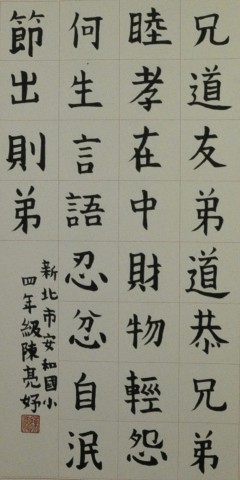 兄道友弟道恭兄弟
睦孝在中財物輕怨
何生言語忍忿自泯
節出則弟
新北市安和國小
四年級陳亮妤